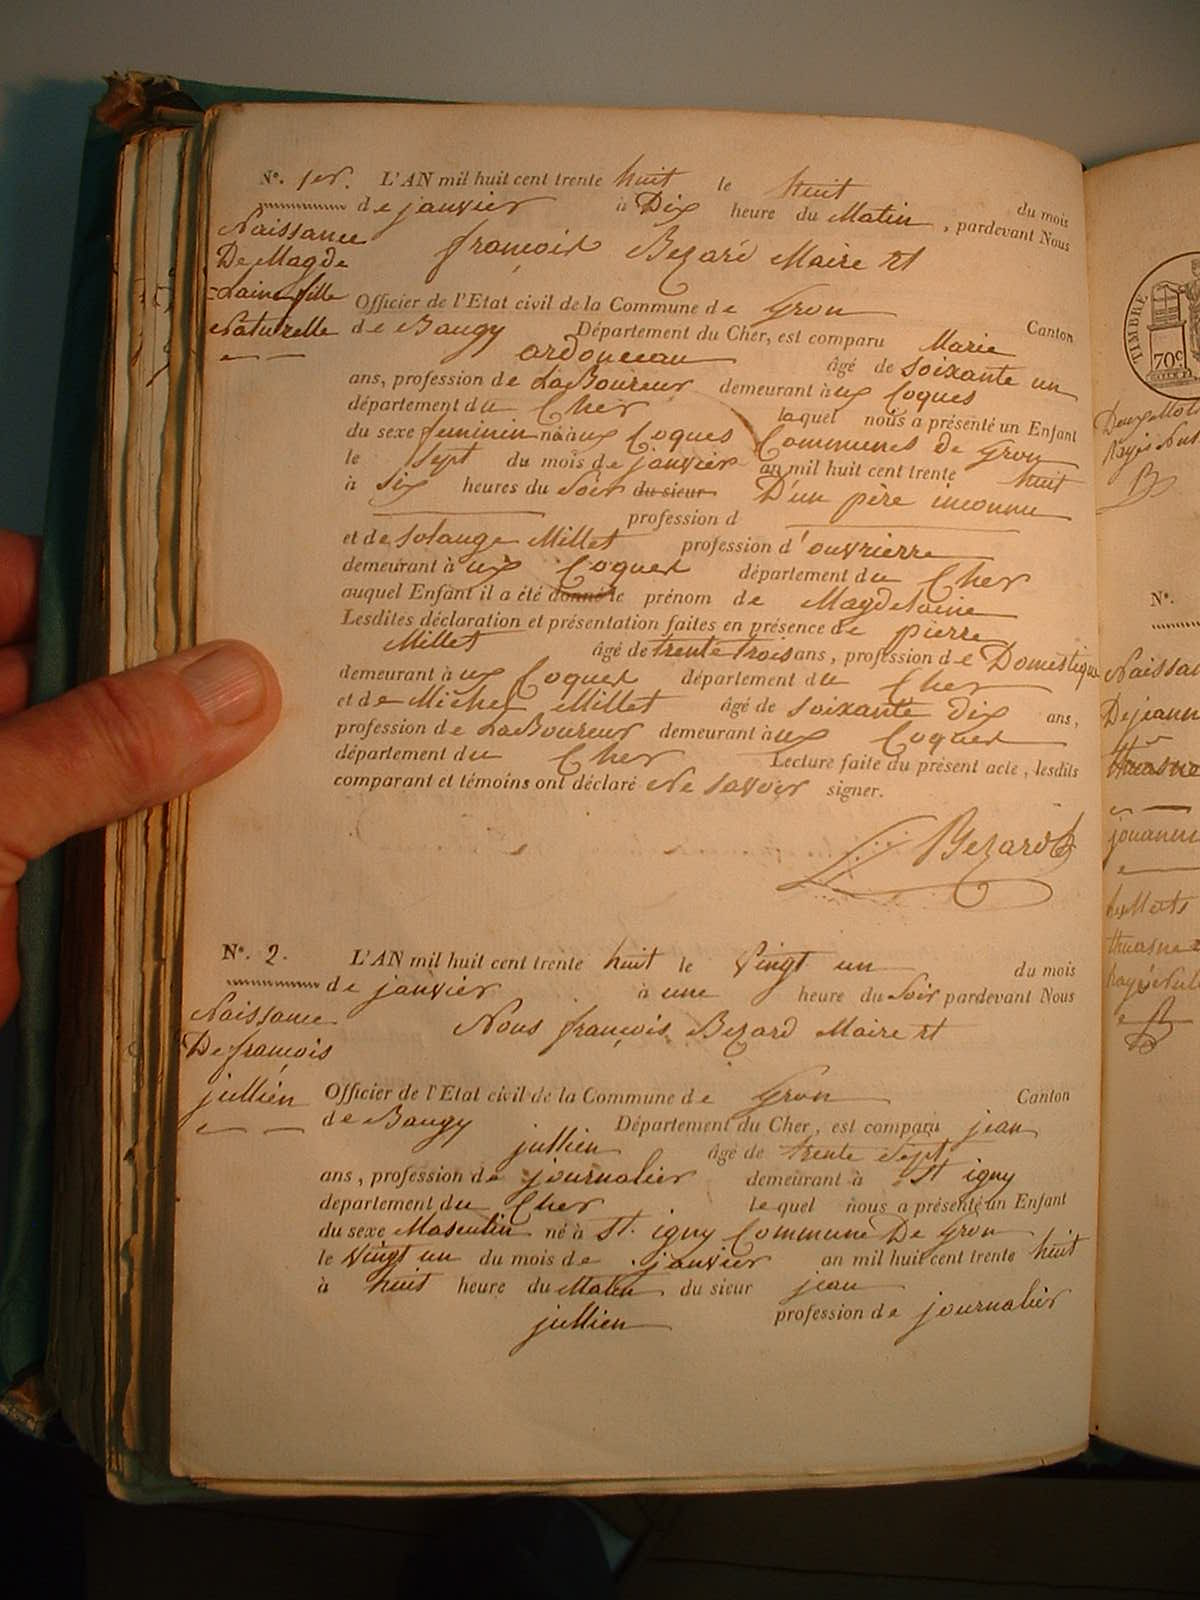 N°. 1er. L'AN mil huit cent trente huit le huit du mois
de janvier à Dix heure du Matin, pardevant Nous
Naissance
De Magde
laine fille
Naturelle
françois Bezard Maire et
Officier de l'Etat civil de la Commune de Gron Canton
de Baugy Département du Cher, est comparu Marie
ardonceau âgé de soixante un
ans, profession de LaBoureur demeurant à ux Coques
département du Cher laquel nous a présenté un Enfant
du sexe feminin né à aux Coques Communes de Gron
le sept du mois de janvier an mil huit cent trente huit
à six heures du Soir du sieur D'un père inconnu
profession d
et de Solange Millet profession d'ouvrierre
demeurant à ux Coques département du Cher
auquel Enfant il a été donné le prénom de Magdelaine
Lesdites déclaration et présentation faites en présence de pierre
Millet âgé de trente trois ans, profession de Domestique
demeurant à ux Coques département du Cher
et de Michel Millet âgé de soixante dix ans,
profession de LaBoureur demeurant à ux Coques
département du Cher Lecture faite du présent acte, lesdits
comparant et témoins ont déclaré Ne savoir signer.
Bezard
N°. 2. L'AN mil huit cent trente huit le Vingt un du mois
de janvier à une heure du Soir pardevant Nous
Naissance
De françois
jullien
Nous françois Bezard Maire et
Officier de l'Etat civil de la Commune de Gron Canton
de Baugy Département du Cher, est comparu jean
jullien âgé de trente sept
ans, profession de journalier demeurant à St igny
département du Cher lequel nous a présenté un Enfant
du sexe Masculin né à St. igny Commune De Gron
le Vingt un du mois de janvier an mil huit cent trente huit
à huit heure du Matin du sieur jean
jullien profession de journalier
TIMBRE
70c
N°.
Naissan
De jeann
thuasne
jouanin
thuasne